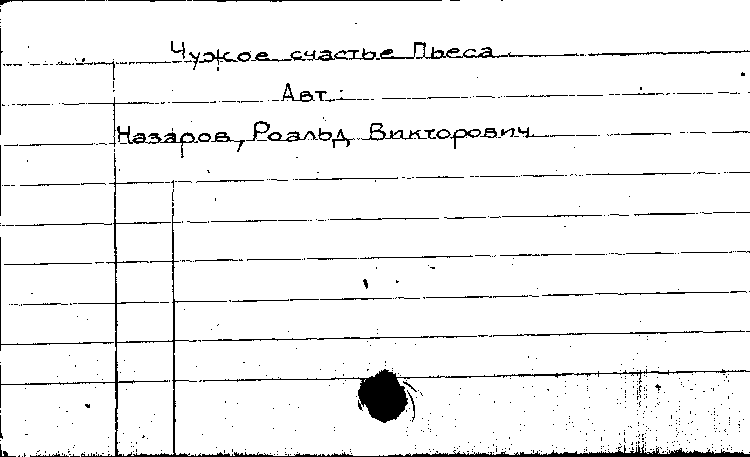 Чужое счастье Пьеса.
Авт.:
Назаров, Роальд Викторович